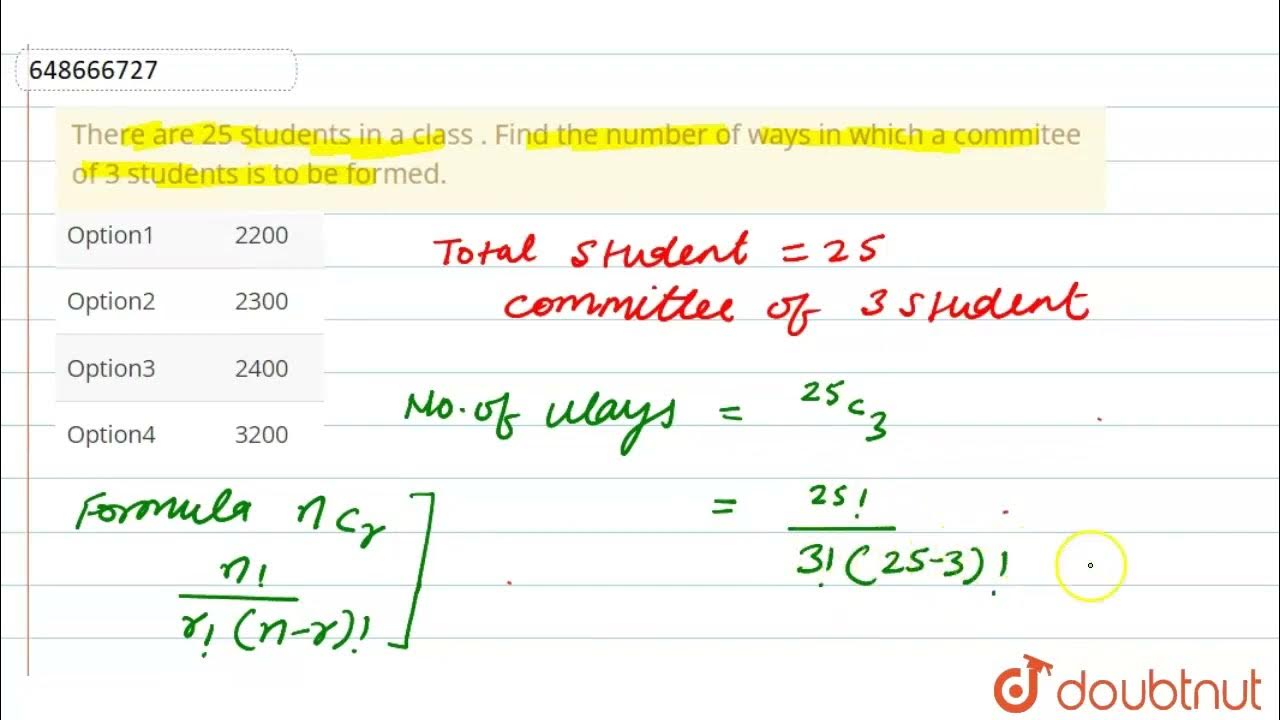 648666727
There are 25 students in a class . Find the number of ways in which a commitee
of 3 students is to be formed.
Option1 2200
Option2 2300
Option3 2400
Option4 3200
Total student = 25
committee of 3 student
No. of ways = 25c3
= 25!
3! (25-3)!
Formula n cr
n!
r! (n-r)!
doubtnut